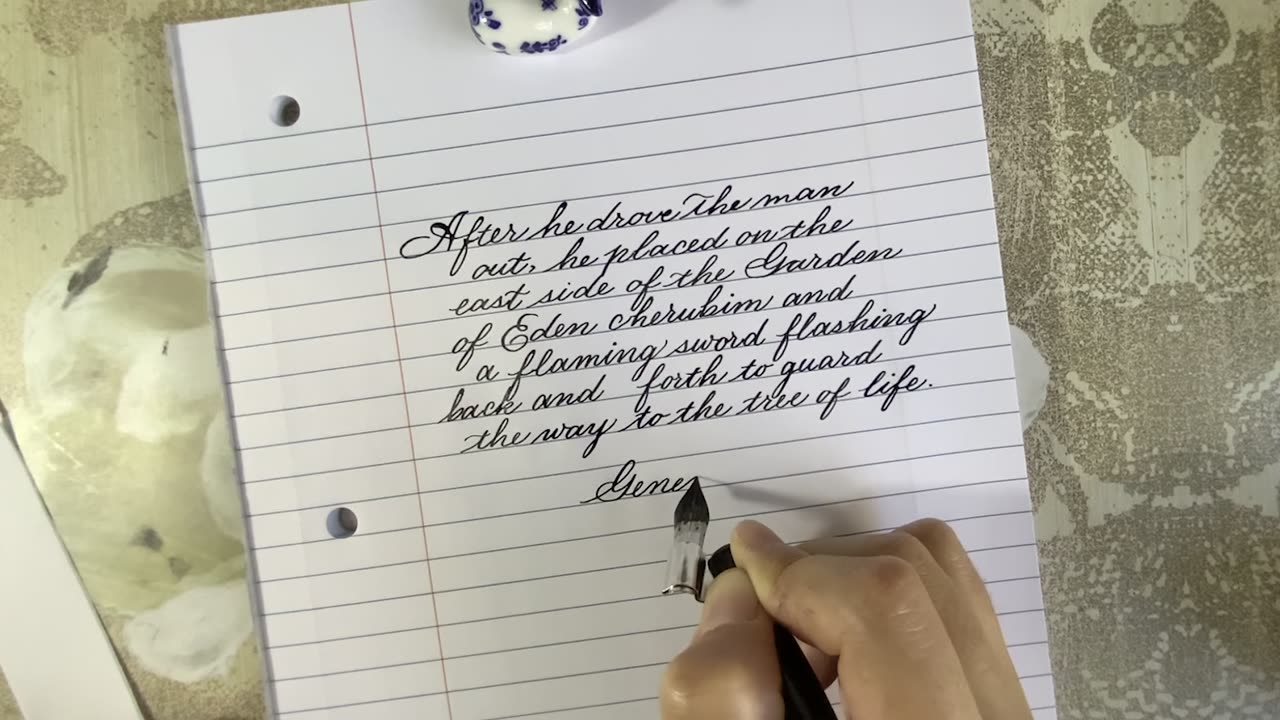 After he drove the man
out, he placed on the
east side of the Garden
of Eden cherubim and
a flaming sword flashing
back and forth to guard
the way to the tree of life.
Gene